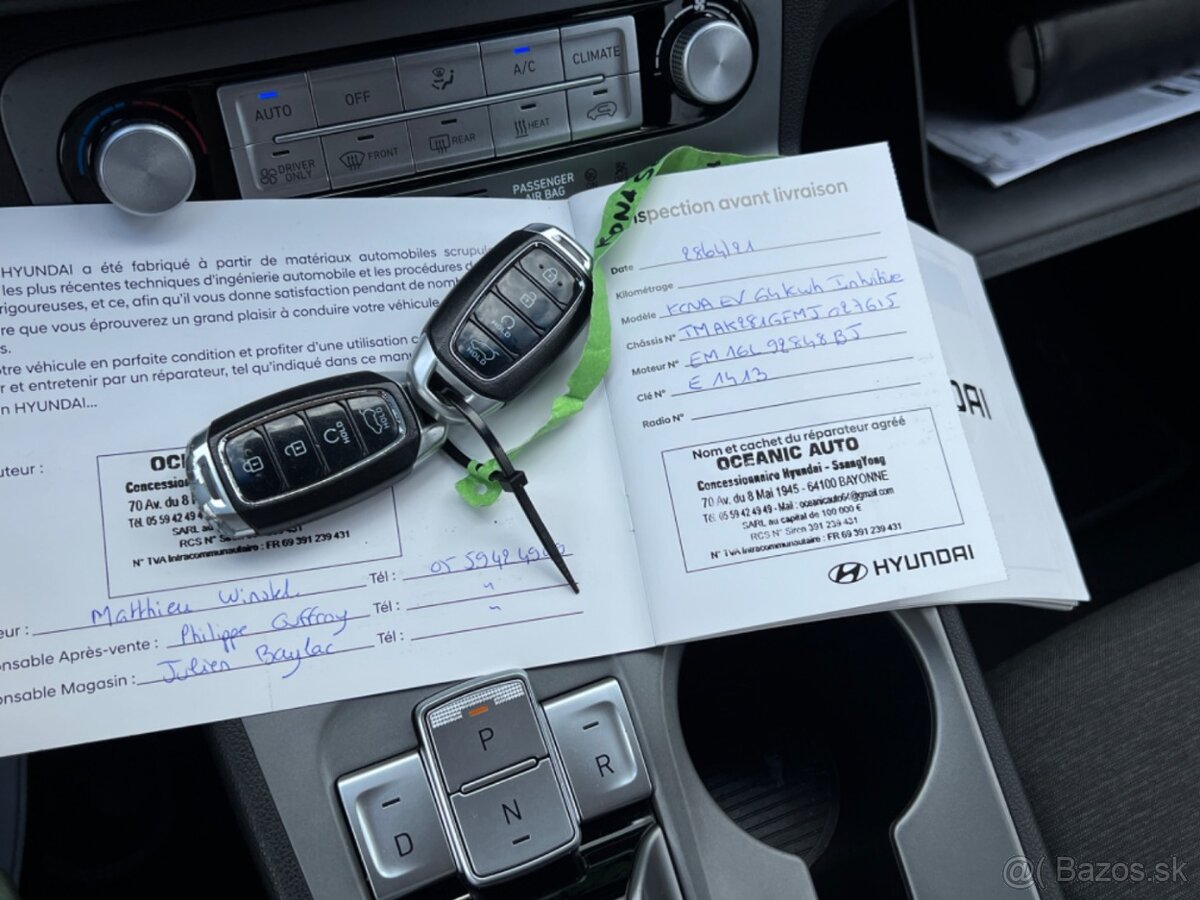 AUTO
OFF
A/C
CLIMATE
DRIVER ONLY
FRONT
REAR
HEAT
PASSENGER
AIR BAG
HYUNDAI a été fabriqué à partir de matériaux automobiles
les plus récentes techniques d'ingénierie automobile et les procédures
rigoureuses, et ce, afin qu'il vous donne satisfaction pendant de
re que vous éprouverez un grand plaisir à conduire votre véhicule
s.
otre véhicule en parfaite condition et profiter d'une utilisation
er et entretenir par un réparateur, tel qu'indiqué dans ce
n HYUNDAI...
uteur :
Concession
70 Av. du 8
Tél. 05 59 42 49
SARL au
N° TVA Intracommunautaire : FR 69 391 239 431
eur : Matthieu Tél : 05 59 42 49
onsable Après-vente : Philippe Tél : "
onsable Magasin : Julien Baylac Tél : "
HOLD
HOLD
HOLD
HOLD
KONA
Inspection avant livraison
Date
Kilométrage
Modèle KONA EV 64kwh Intuitive
Châssis N° TMAK281GFMJ027615
Moteur N° EM16L92848BJ
Clé N° E1413
Radio N°
Nom et cachet du réparateur agréé
OCEANIC AUTO
Concessionnaire Hyundai - SsangYong
70 Av. du 8 Mai 1945 - 64100 BAYONNE
Tél. 05 59 42 49 49 - Mail : oceanicauto64@gmail.com
SARL au capital de 100 000 €
RCS N° Siren 391 239 431
N° TVA Intracommunautaire : FR 69 391 239 431
HYUNDAI
DAI
P
R
N
D
@( Bazos.sk